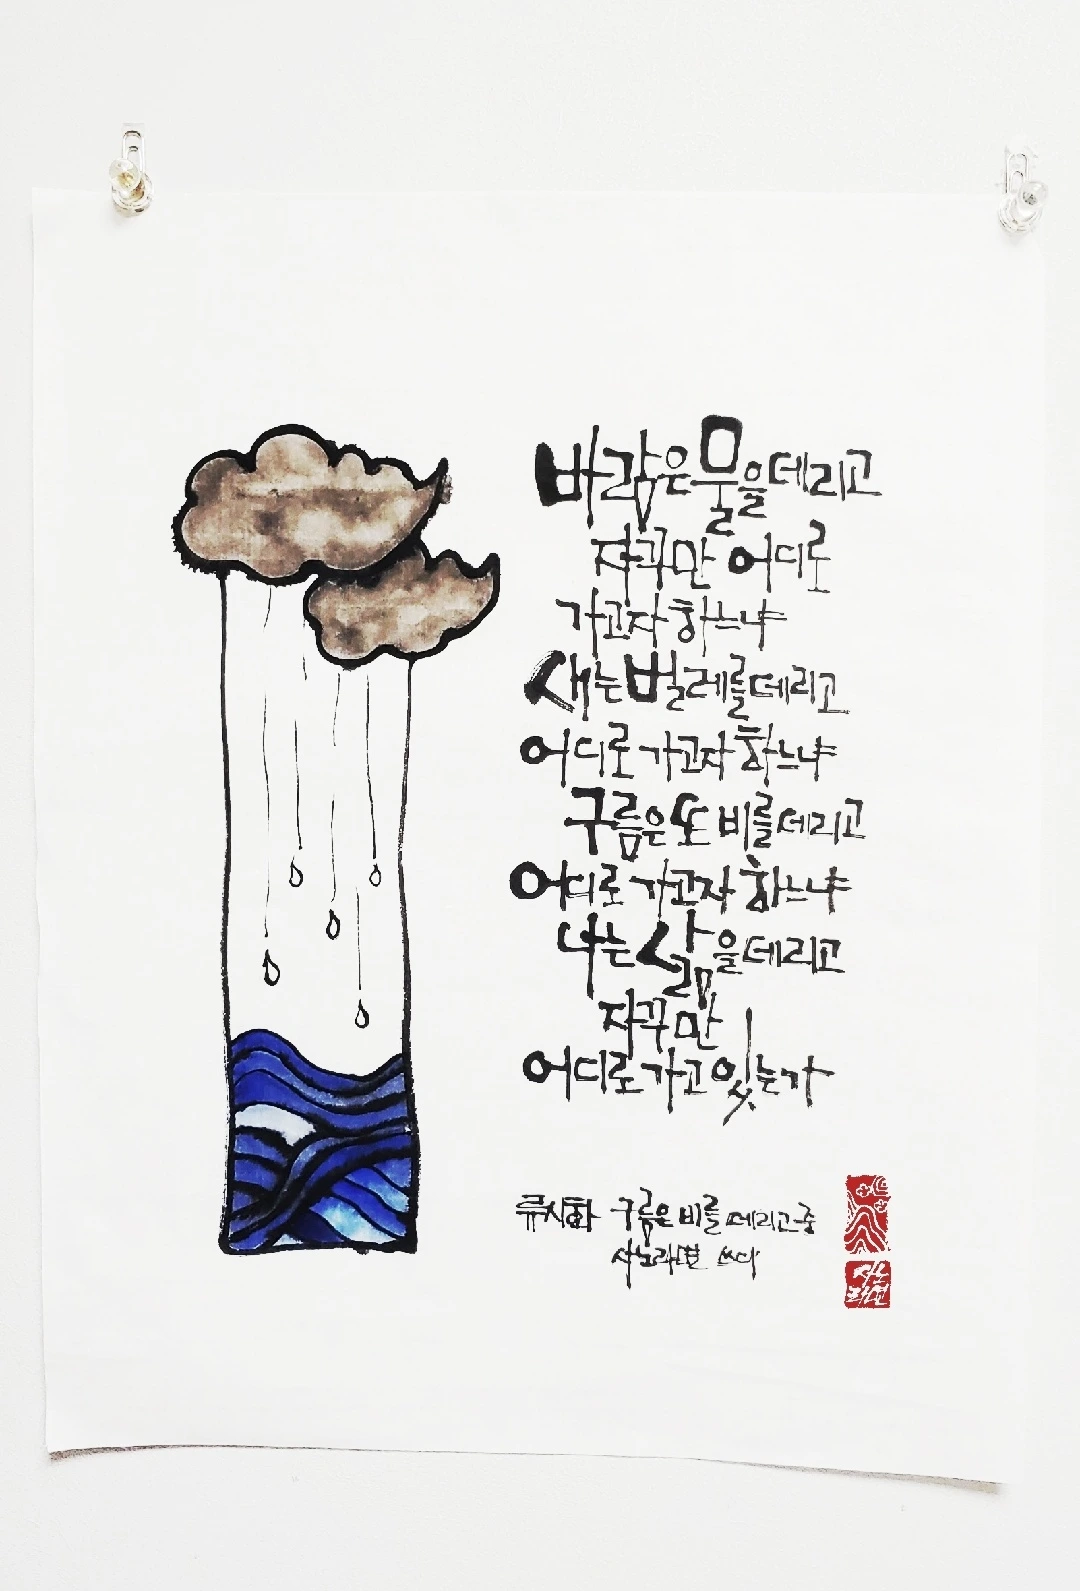 바람은 물을 데리고
자꾸만 어디로
가고자 하느냐
새는 벌레를 데리고
어디로 가고자 하느냐
구름은 또 비를 데리고
어디로 가고자 하느냐
나는 삶을 데리고
자꾸만
어디로 가고 있는가
류시화 구름은 비를 데리고 중
사노라면 쓰다
사노
라면